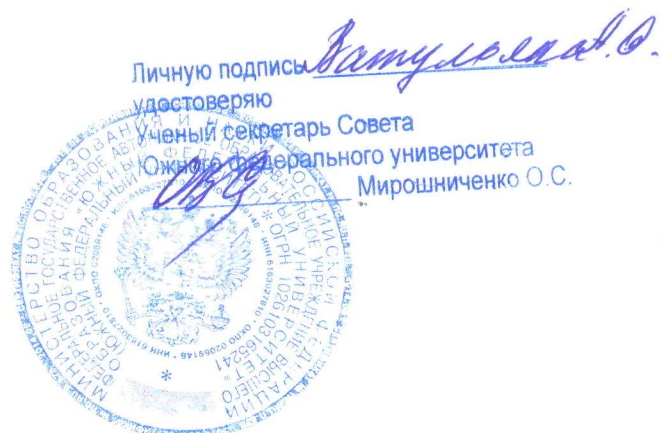 Личную подпись Ватульяна А.О.
удостоверяю
Ученый секретарь Совета
Южного федерального университета
Мирошниченко О.С.
МИНИСТЕРСТВО ОБРАЗОВАНИЯ И НАУКИ РОССИЙСКОЙ ФЕДЕРАЦИИ
ФЕДЕРАЛЬНОЕ ГОСУДАРСТВЕННОЕ АВТОНОМНОЕ ОБРАЗОВАТЕЛЬНОЕ УЧРЕЖДЕНИЕ ВЫСШЕГО
ОБРАЗОВАНИЯ «ЮЖНЫЙ ФЕДЕРАЛЬНЫЙ УНИВЕРСИТЕТ»
* ОГРН 1026103165241
ИНН 6163027810 • ОКПО 02069148